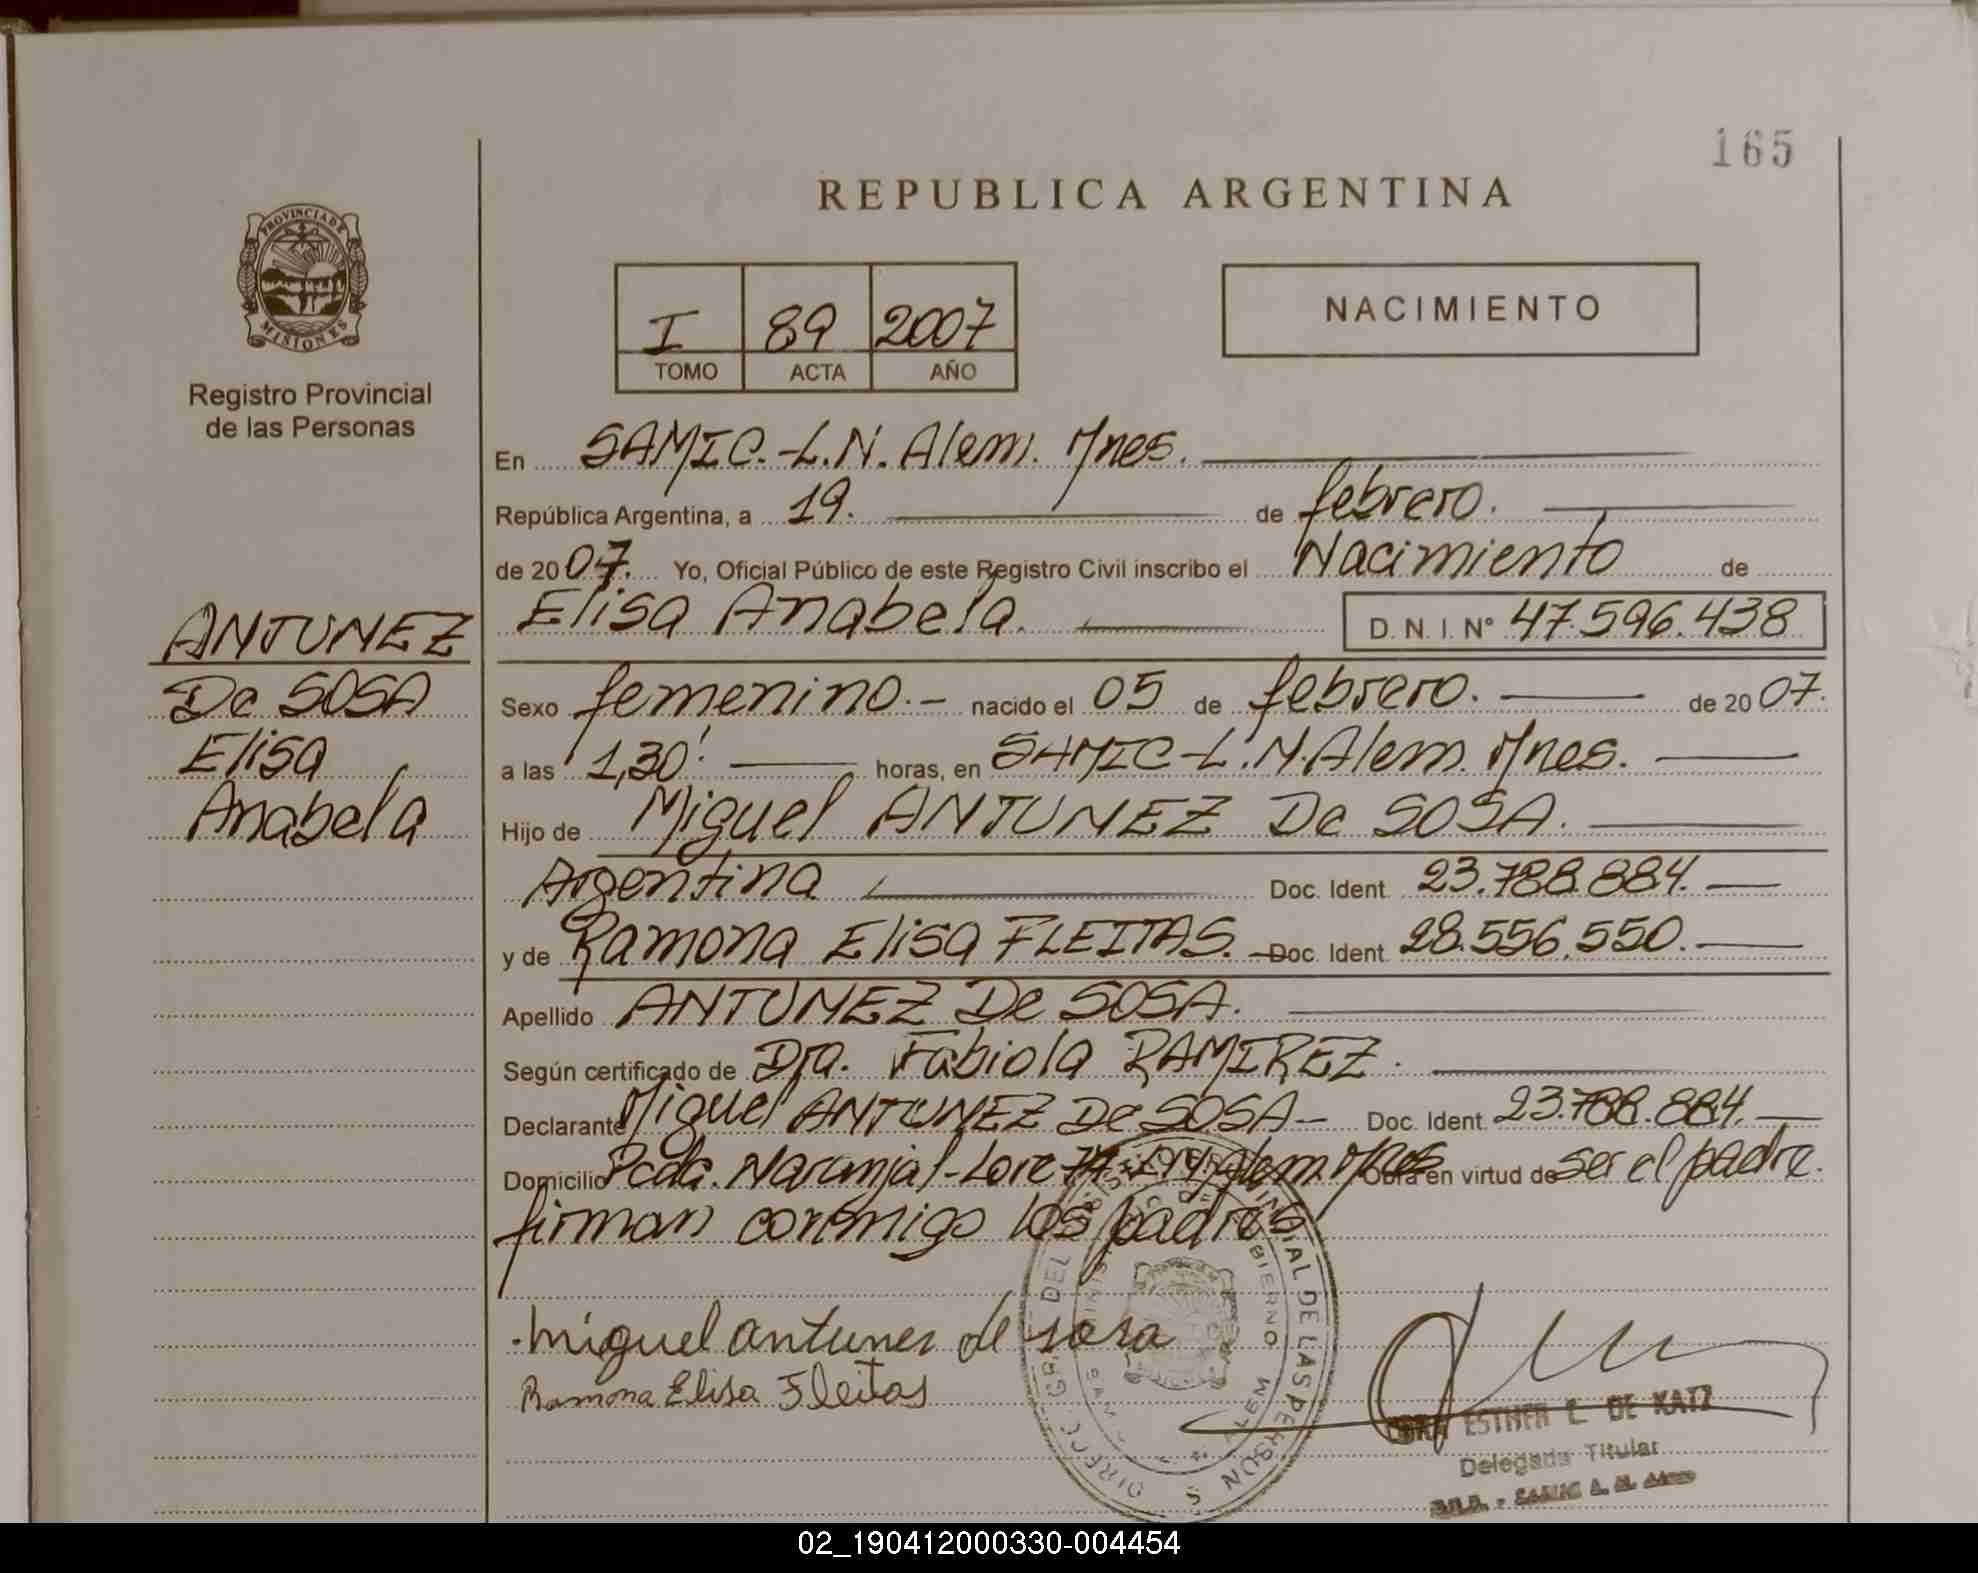 165
REPUBLICA ARGENTINA
PROVINCIA DE
MISIONES
Registro Provincial
de las Personas
I 89 2007
TOMO ACTA AÑO
NACIMIENTO
En SAMIC.-L.N. Alem. Mnes.
República Argentina, a 19. de febrero.
de 2007. Yo, Oficial Público de este Registro Civil inscribo el Nacimiento de
Elisa Anabela. D.N.I. Nº 47.596.438
ANTUNEZ
De SOSA
Elisa
Anabela
Sexo femenino.- nacido el 05 de febrero. de 2007.
a las 1,30' horas, en SAMIC-L.N.Alem. Mnes.
Hijo de Miguel ANTUNEZ De SOSA.
Argentina Doc. Ident. 23.788.884.
y de Ramona Elisa FLEITAS. Doc. Ident. 28.556.550.
Apellido ANTUNEZ De SOSA.
Según certificado de Dra. Fabiola RAMIREZ.
Declarante Miguel ANTUNEZ De SOSA- Doc. Ident. 23.788.884.
Domicilio Pcda. Naranjal-Lore L.N.Alem. Mnes Obra en virtud de ser el padre.
firman conmigo los padres
miguel antunes de sosa
Ramona Elisa Fleitas
ESTHER E. DE KATZ
Delegada Titular
02_190412000330-004454